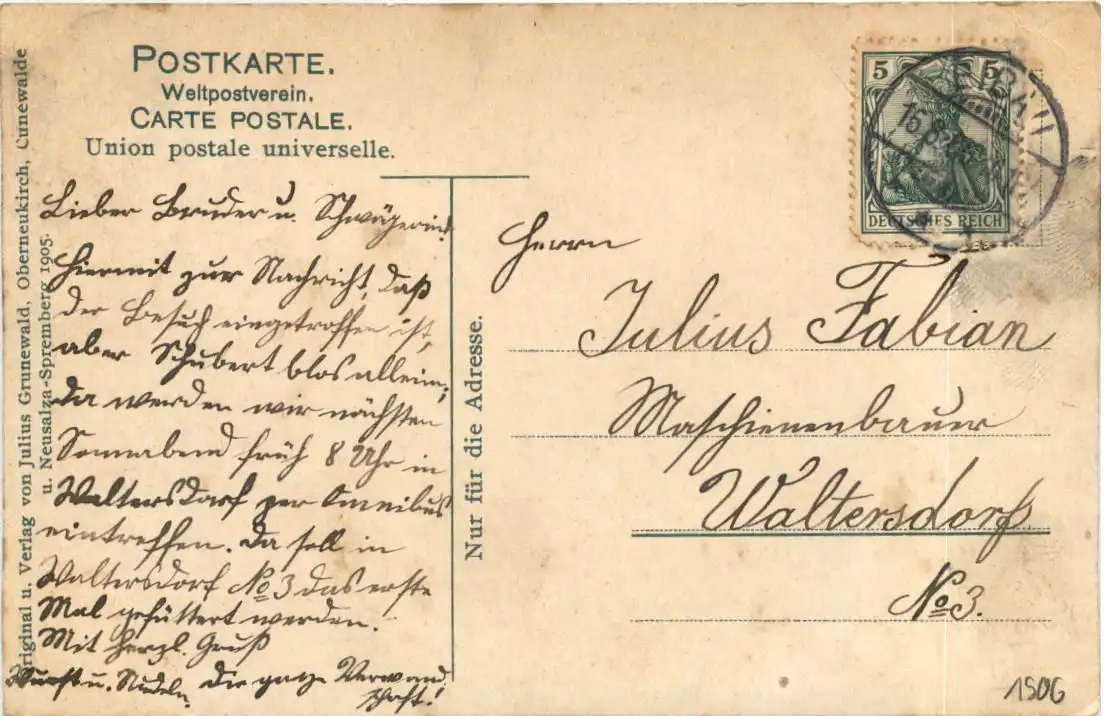 POSTKARTE.
Weltpostverein.
CARTE POSTALE.
Union postale universelle.
Original u. Verlag von Julius Grunewald, Oberneukirch, Cunewalde
u. Neusalza-Spremberg 1905.
Lieber Bruder u. Schwägerin!
Hiermit zur Nachricht, daß
der Besuch eingetroffen ist,
aber Schubert blos allein;
da werden wir nächsten
Sonnabend früh 8 Uhr in
Waltersdorf per Omeibus
eintreffen. Da soll in
Waltersdorf No 3 das erste
Mal gefüttert werden.
Mit herzl. Gruß
Wurst u. Nudeln. Die ganze Verwand
schaft!
Nur für die Adresse.
5 5
DEUTSCHES REICH
EIBAU
Herrn
Julius Fabian
Maschienenbauer
Waltersdorf
No 3.
1906